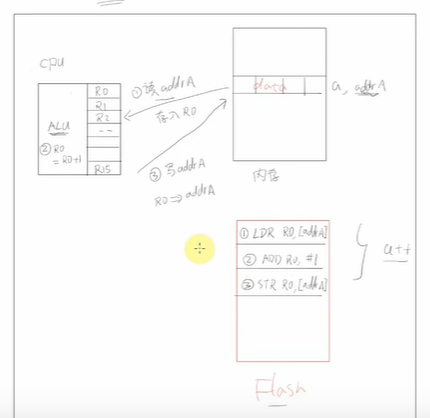 CPU
R0
R1
R2
--
R15
ALU
② R0
= R0+1
① 读 addrA
存入 R0
③ 写 addrA
R0 => addrA
data
a, addrA
内存
① LDR R0, [addrA]
② ADD R0, #1
③ STR R0, [addrA]
a++
Flash